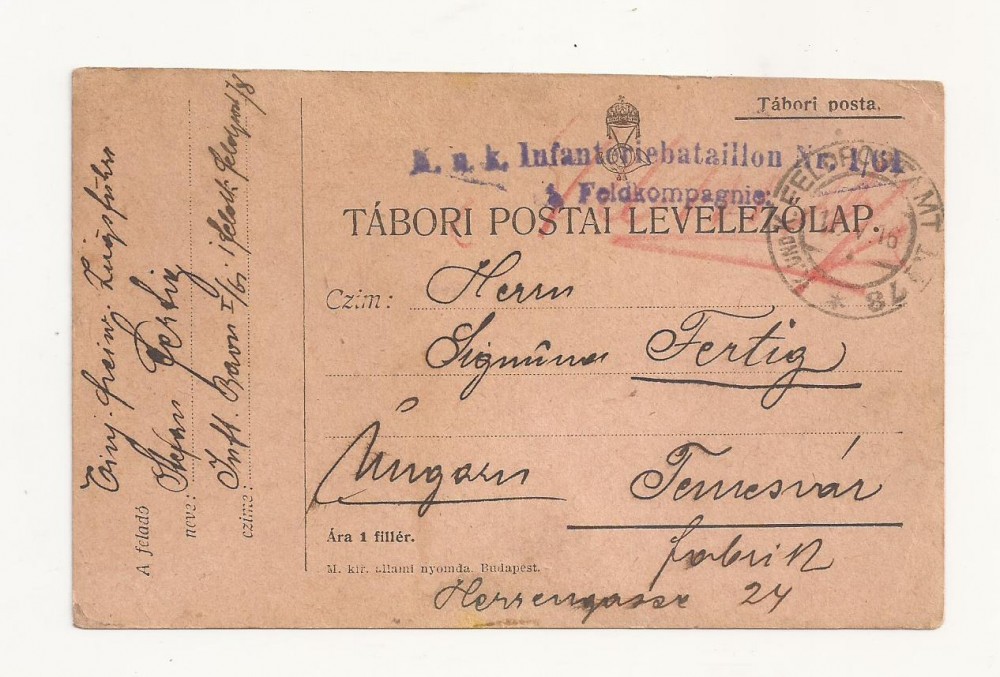 Tábori posta.
K. u. k. Infanteriebataillon Nr. I/61
1. Feldkompagnie.
TÁBORI POSTAI LEVELEZŐLAP.
K.UND K. FELDPOSTAMT
78
Czim: Herrn
Sigmund Fertig
Ungarn Temesvár
Ára 1 fillér.
Fabrik
M. kir. állami nyomda. Budapest.
Herrengasse 24
A feladó
Einj. Freiw. Zugsführer
neve: Stefan Fertig
czime: Inft. Baon I/61 1 Feldk. Feldpost 78